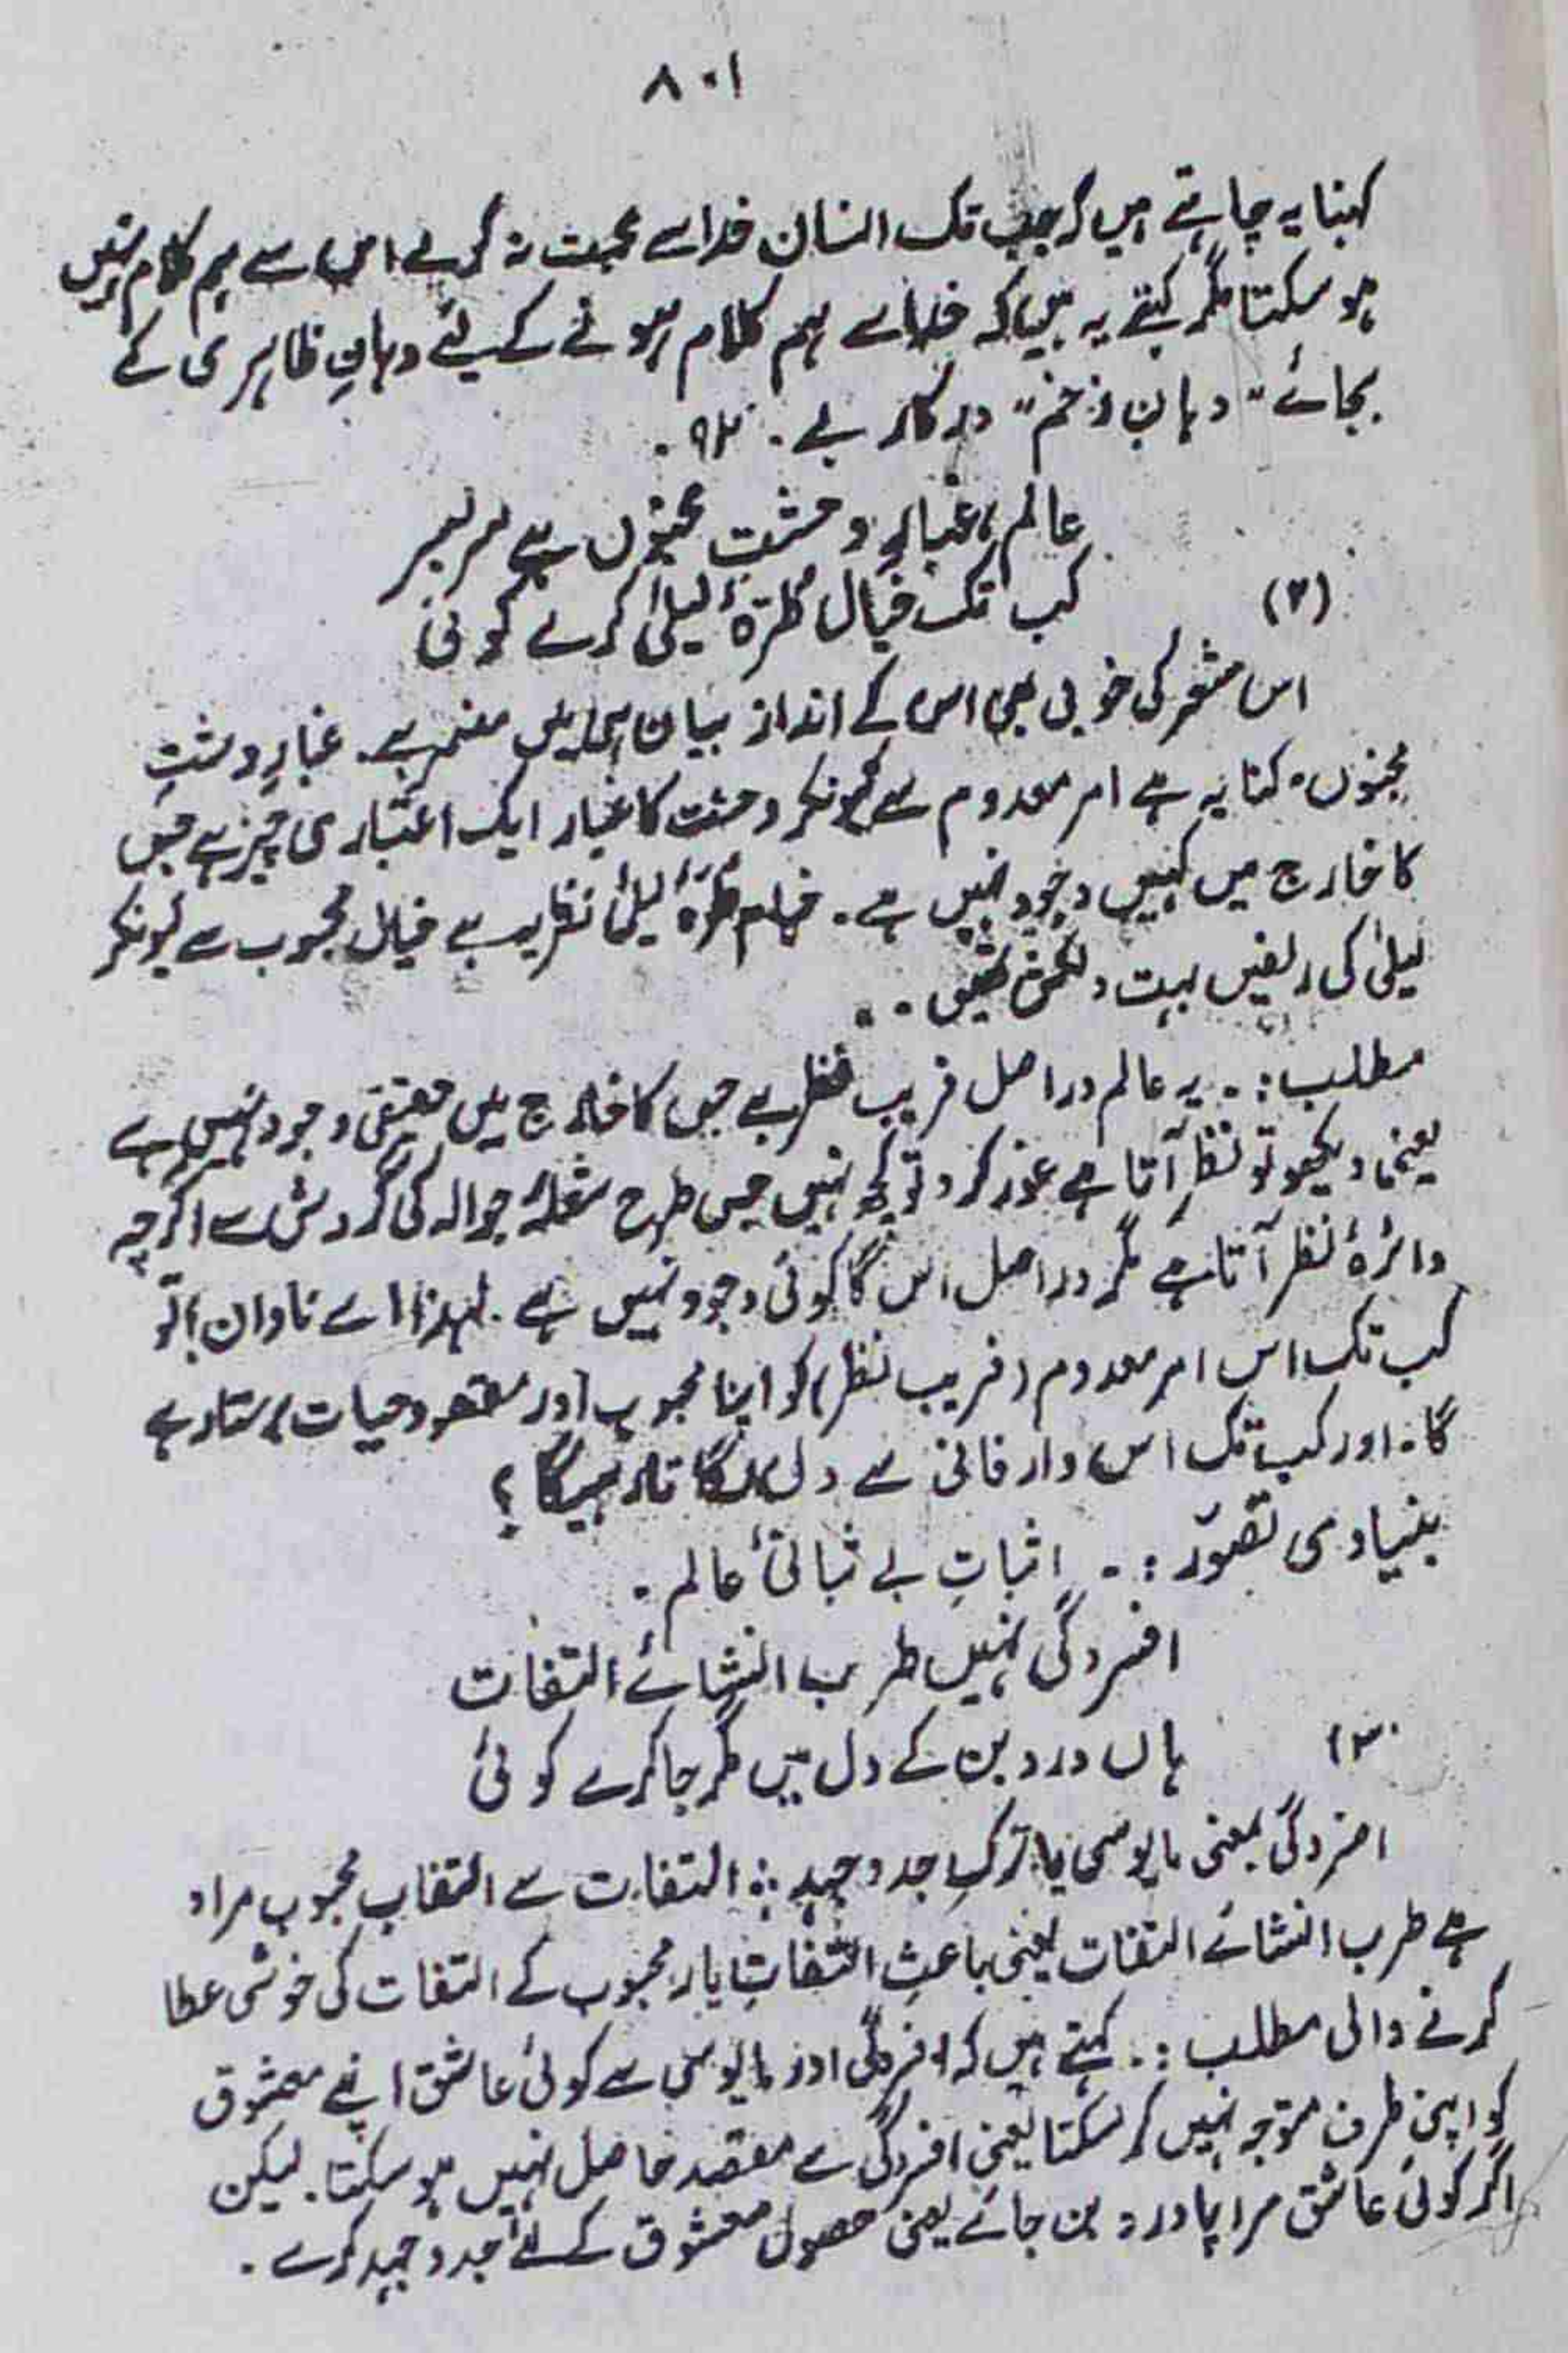 ۸۰۱
کہنا یہ چاہتے ہیں کہ جب تک انسان خدا سے محبت نہ کرے اس سے ہم کلام نہیں
ہو سکتا مگر کہتے یہ ہیں کہ خدا سے ہم کلام ہونے کے لیئے دہانِ ظاہری کے
بجائے "دہانِ زخم" درکار ہے۔
عالم، غبارِ وحشتِ مجنوں ہے سربسر
(۲) کب تک خیال طرۂ لیلیٰ کرے کوئی
اس شعر کی خوبی بھی اس کے انداز بیان ہی میں مضمر ہے۔ غبارِ وحشتِ
مجنوں۔ کنایہ ہے امر معدوم سے کیونکہ وحشت کا غبار ایک اعتباری چیز ہے جس
کا خارج میں کہیں وجود نہیں ہے۔ طرۂ لیلیٰ ہے خیالِ محبوب سے کیونکہ
لیلیٰ کی زلفیں بہت دلکش تھیں۔
مطلب:۔ یہ عالم در اصل فریب نظر ہے جس کا خارج میں حقیقی وجود نہیں ہے
یعنی دیکھو تو نظر آتا ہے غور کرو تو کچھ نہیں جس طرح شعلۂ جوالہ کی گردش سے اگرچہ
دائرہ نظر آتا ہے مگر در اصل اس کا کوئی وجود نہیں ہے۔ لہذا اے نادان! تو
کب تک اس امر معدوم (فریب نظر) کو اپنا محبوب اور مقصود حیات رہے
گا۔ اور کب تک اس دار فانی سے دل لگاتا رہیگا؟
بنیادی تصوّر:۔ اثباتِ بے ثباتئ عالم۔
افسردگی نہیں طرب انشائے التفات
(۳ ہاں درد بن کے دل میں مگر جا کرے کوئی
افسردگی بمعنی مایوسی یا ترکِ جد و جہد: التفات سے التفاتِ محبوب مراد
ہے طرب انشائے التفات یعنی باعثِ التفاتِ یار محبوب کے التفات کی خوشی عطا
کرنے والی مطلب:۔ کہتے ہیں کہ افسردگی اور مایوسی سے کوئی عاشق اپنے معشوق
کو اپنی طرف متوجہ نہیں کر سکتا یعنی افسردگی سے مقصد حاصل نہیں ہو سکتا۔ لیکن
اگر کوئی عاشق سراپا درد بن جائے یعنی حصول معشوق کے لئے جد و جہد کرے۔